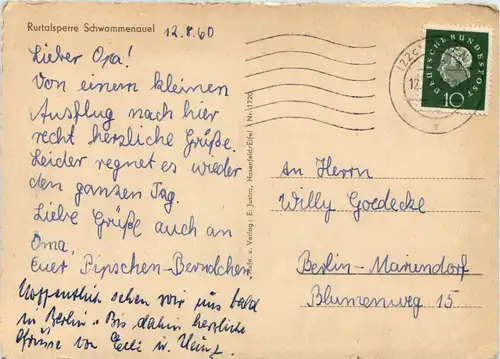 Rurtalsperre Schwammenauel
12.8.60
Lieber Opa!
Von einem kleinen
Ausflug nach hier
recht herzliche Grüße.
Leider regnet es wieder
den ganzen Tag.
Liebe Grüße auch an
Oma,
Euer Pipschen-Berndchen
Hoffentlich sehen wir uns bald
in Berlin. Bis dahin herzliche
Grüsse von Elli u. Heinz.
Aufn. u. Verlag: E. Justra, Hasenfeld/Eifel (Nr. 172)
DEUTSCHE BUNDESPOST
10
(22c)
An Herrn
Willy Goedecke
Berlin-Mariendorf
Blumenweg 15